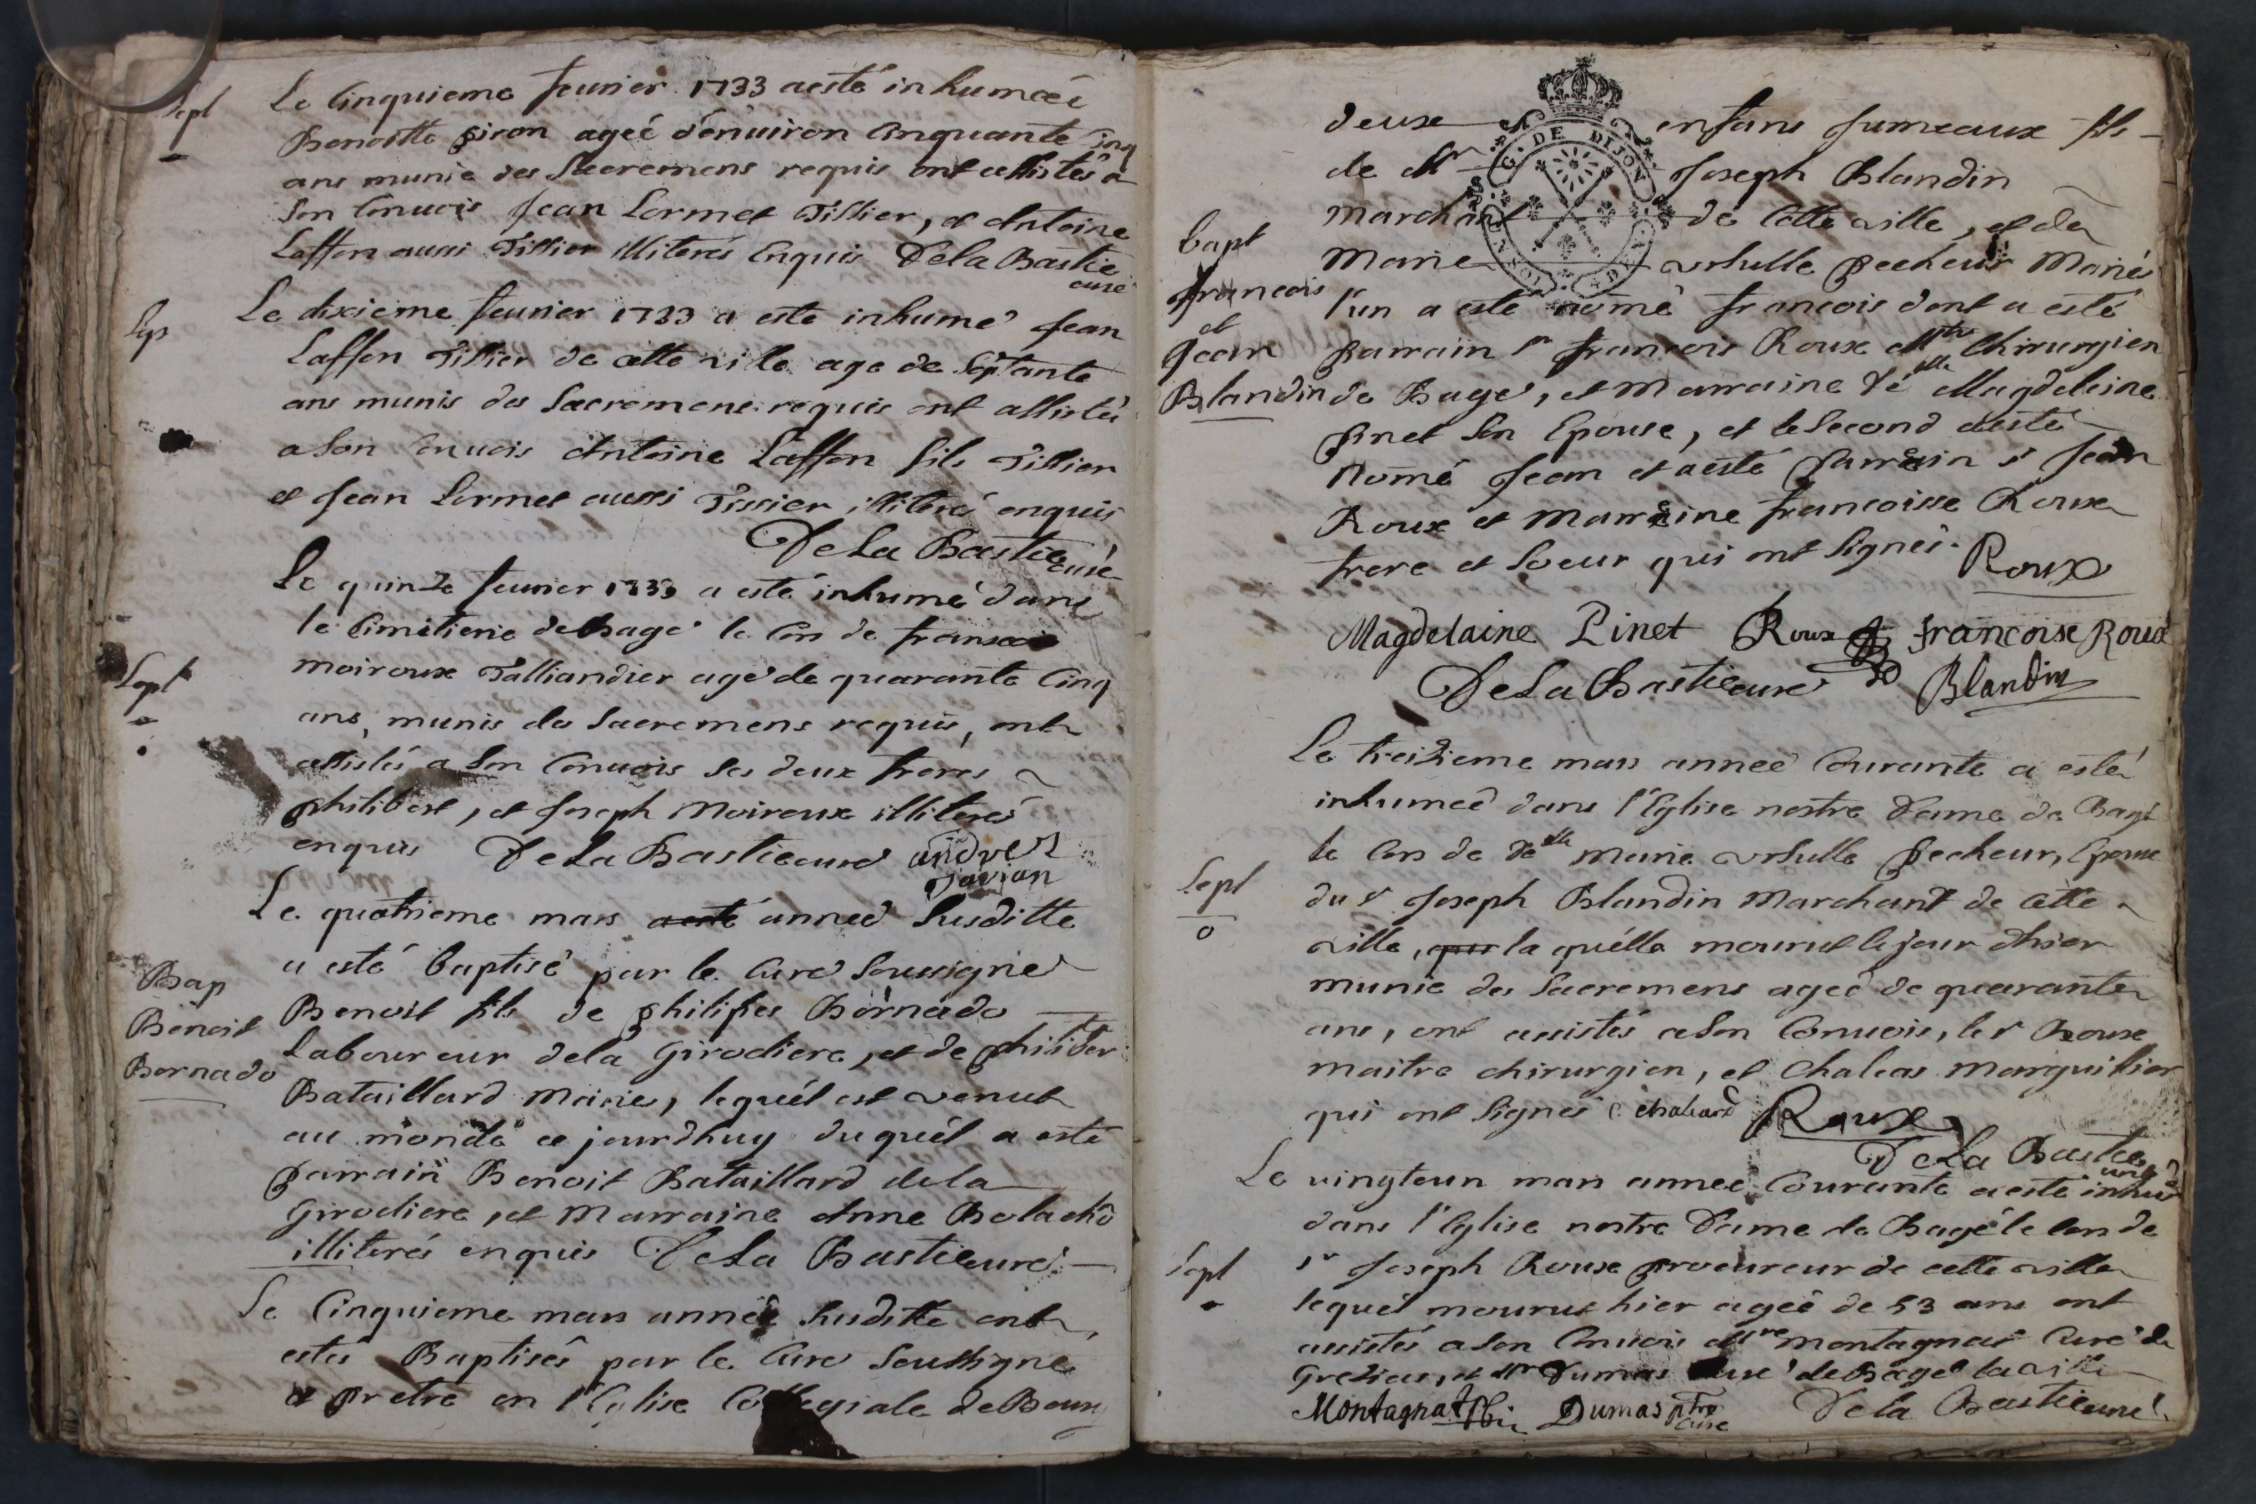 Sept
Le Cinquieme feurier 1733 a esté inhumeé
Benoitte piron ageé d'enuiron Cinquante Cinq
ans munie des Sacremens requis ont assistés a
Son Conuois Jean Lormet Tissier, et Antoine
Laffon aussi Tissier illiterés Enquis De la Bastie
curé
Sep
Le dixieme feurier 1733 a este inhumé Jean
Laffon Tissier de cette ville age de Septante
ans munis des Sacremens requis ont assistés
a Son Conuois Antoine Laffon fils Tissier
et Jean Lormet aussi Tissier illiteré enquis
De La Bastie curé
Sept
Le quinze feurier 1733 a esté inhumé dans
le Cimitiere de bagé le Cors de francois
moiroux Talliandier agé de quarante Cinq
ans, munis des Sacremens requis, ont
assistés a Son Conuois Ses deux freres
philibert, et Joseph Moiroux illiterés
enquis De La Bastie curé andrez
Favian
Bap
Benoit
Bornado
Le quatrieme mars a esté anneé Susditte
a esté baptisé par le Curé Soussigné
Benoit fils de philipes Bornado
Laboureur de la Girodiere, et de philiber
Bataillard Mariés, lequél est venut
au monde ce jourdhuy duquél a esté
parrain Benoit Bataillard de la
Girodiere, et Marraine Anne Belachô
illiterés enquis De La Bastie curé
Le Cinquieme mars anneé Susditte ont
estés Baptisés par le Curé Soussigné
et pretre en l'Eglise Collegiale de Bourg
G. DE DIJON
bapt
francois
et
Jean
Blandin
deux enfans Jumeaux fils
de Mr Joseph Blandin
marchant de Cette ville, et de
Marie Vrsulle pecheur Mariés
l'un a esté nomé francois dont a esté
parrain Sr francois Roux Mtre Chirurgien
de Bagé, et Marraine Delle Magdeleine
pinet Son Epouse, et le Second a esté
Nomé Jean et a esté parrain Sr Jean
Roux et Marraine francoisse Roux
frere et Soeur qui ont Signés. Roux
Magdelaine Pinet Roux francoise Roux
De La Bastie curé Blandin
Sept
Le treizieme mars anneé Courante a esté
inhumeé dans l'Eglise nostre Dame de Bagé
le Cors de Delle Marie Vrsulle pecheur, Epouse
du Sr Joseph Blandin Marchant de Cette
ville, qui la quélle mourut le jour d'hier
munie des Sacremens ageé de quarante
ans, ont assistés a Son Conuois, le Sr Roux
maitre chirurgien, et Chaleas Marguillier
qui ont Signés Roux
De La Bastie
curé
Sept
Le vingt un mars anneé Courante a esté inhumé
dans l'Eglise nostre Dame de Bagé le Cors de
Sr Joseph Roux procureur de cette ville
lequel mourut hier ageé de 53 ans ont
assistés a Son Conuois Mre Montagnat Curé de
et Mr Dumas Curé de Bagé la ville
Montagnat Dumas ptre curé De la Bastie curé